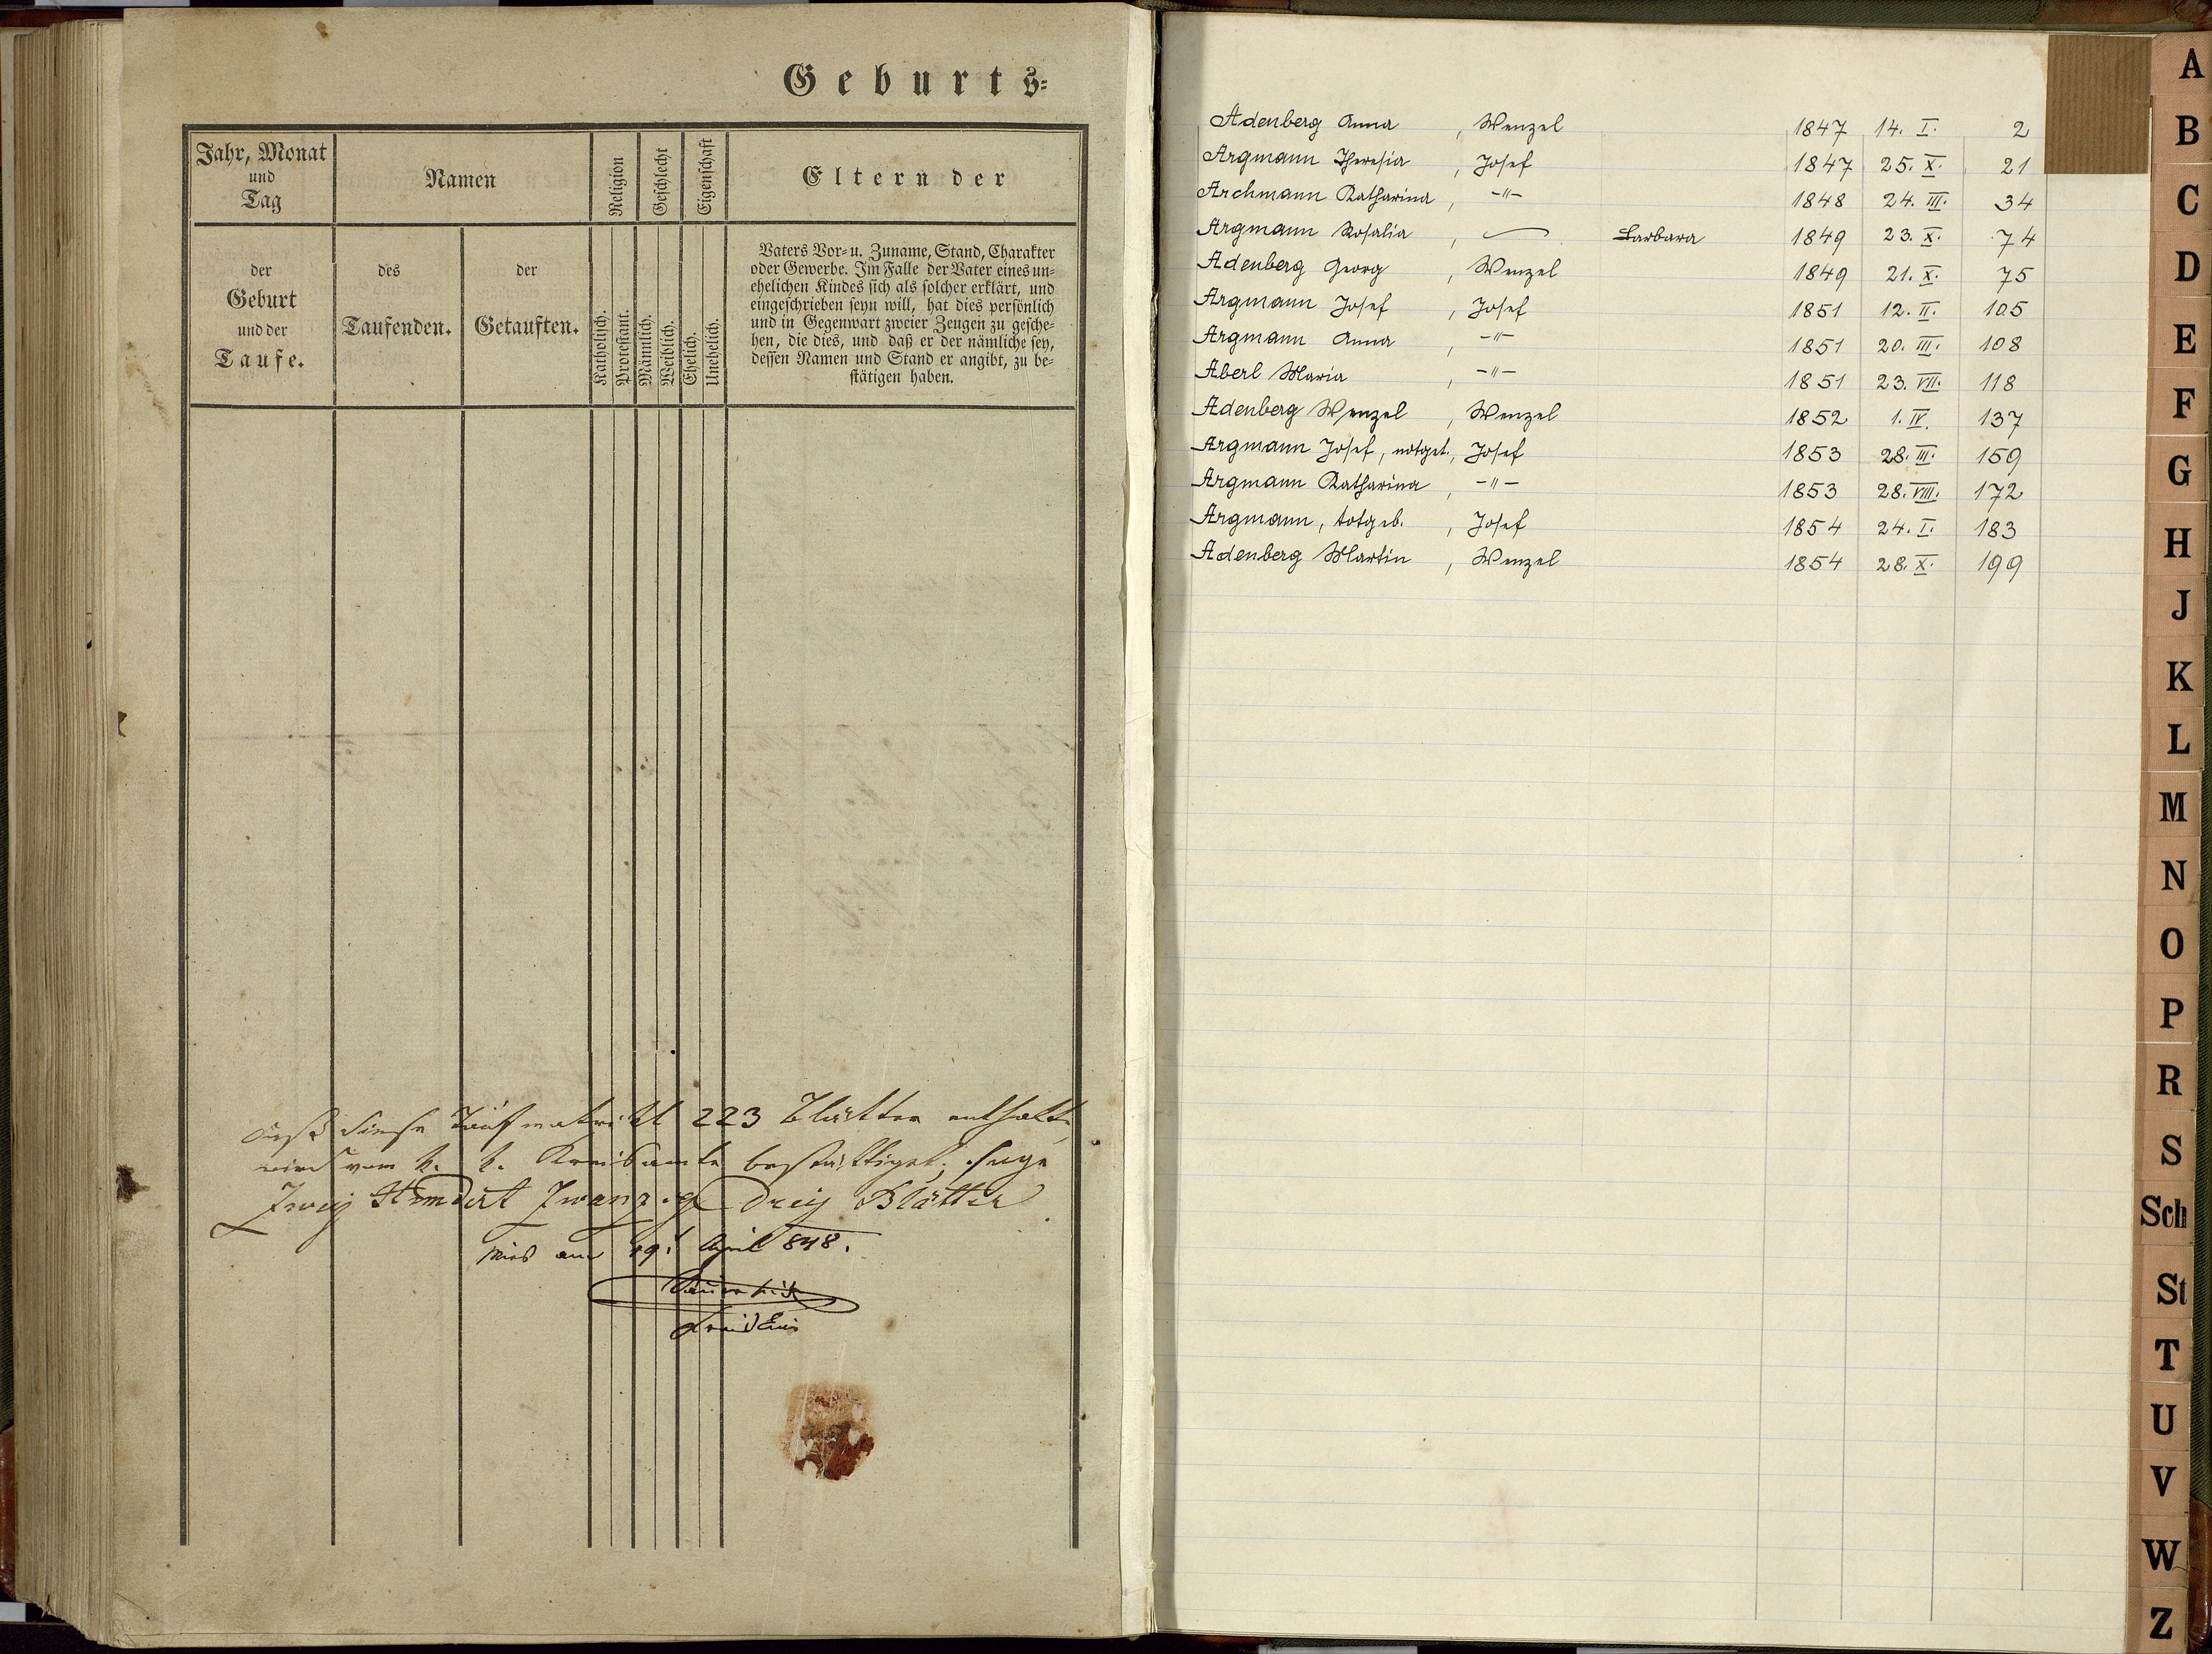 Geburts-
Jahr, Monat
und
Tag
Namen
Religion
Geschlecht
Eigenschaft
Eltern der
der
Geburt
und der
Taufe.
des
Taufenden.
der
Getauften.
Katholisch.
Protestant.
Männlich.
Weiblich.
Ehelich.
Unehelich.
Vaters Vor- u. Zuname, Stand, Charakter
oder Gewerbe. Im Falle der Vater eines un-
ehelichen Kindes sich als solcher erklärt, und
eingeschrieben seyn will, hat dies persönlich
und in Gegenwart zweier Zeugen zu gesche-
hen, die dies, und daß er der nämliche sey,
dessen Namen und Stand er angibt, zu be-
stätigen haben.
Daß diese Taufmatrikel 223 Blätter enthalte
wird vom k. k. Kreisamte bestättiget; sage
Zwey Hundert Zwanzig Drey Blätter
Mies am 29t April 848.
Adenberg Anna, Wenzel 1847 14. I. 2
Argmann Theresia, Josef 1847 25. X. 21
Archmann Katharina, -"- 1848 24. III. 34
Argmann Rosalia, — Barbara 1849 23. X. 74
Adenberg Georg, Wenzel 1849 21. X. 75
Argmann Josef, Josef 1851 12. II. 105
Argmann Anna, -"- 1851 20. III. 108
Aberl Maria, -"- 1851 23. VII. 118
Adenberg Wenzel, Wenzel 1852 1. IV. 137
Argmann Josef, notget., Josef 1853 28. III. 159
Argmann Katharina, -"- 1853 28. VIII. 172
Argmann, totgeb., Josef 1854 24. I. 183
Adenberg Martin, Wenzel 1854 28. X. 199
A
B
C
D
E
F
G
H
J
K
L
M
N
O
P
R
S
Sch
St
T
U
V
W
Z